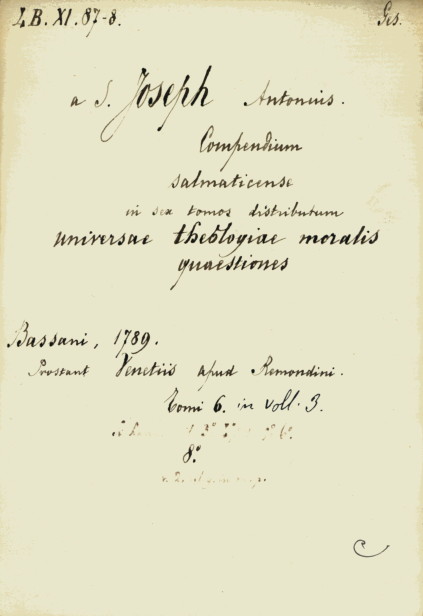 LB. XI. 87-8. Ges.
a S. Joseph Antonius.
Compendium
salmaticense
in sex tomos distributum
universae theologiae moralis
quaestiones
Bassani, 1789.
Prostant Venetiis apud Remondini.
Tomi 6. in voll. 3.
8.º